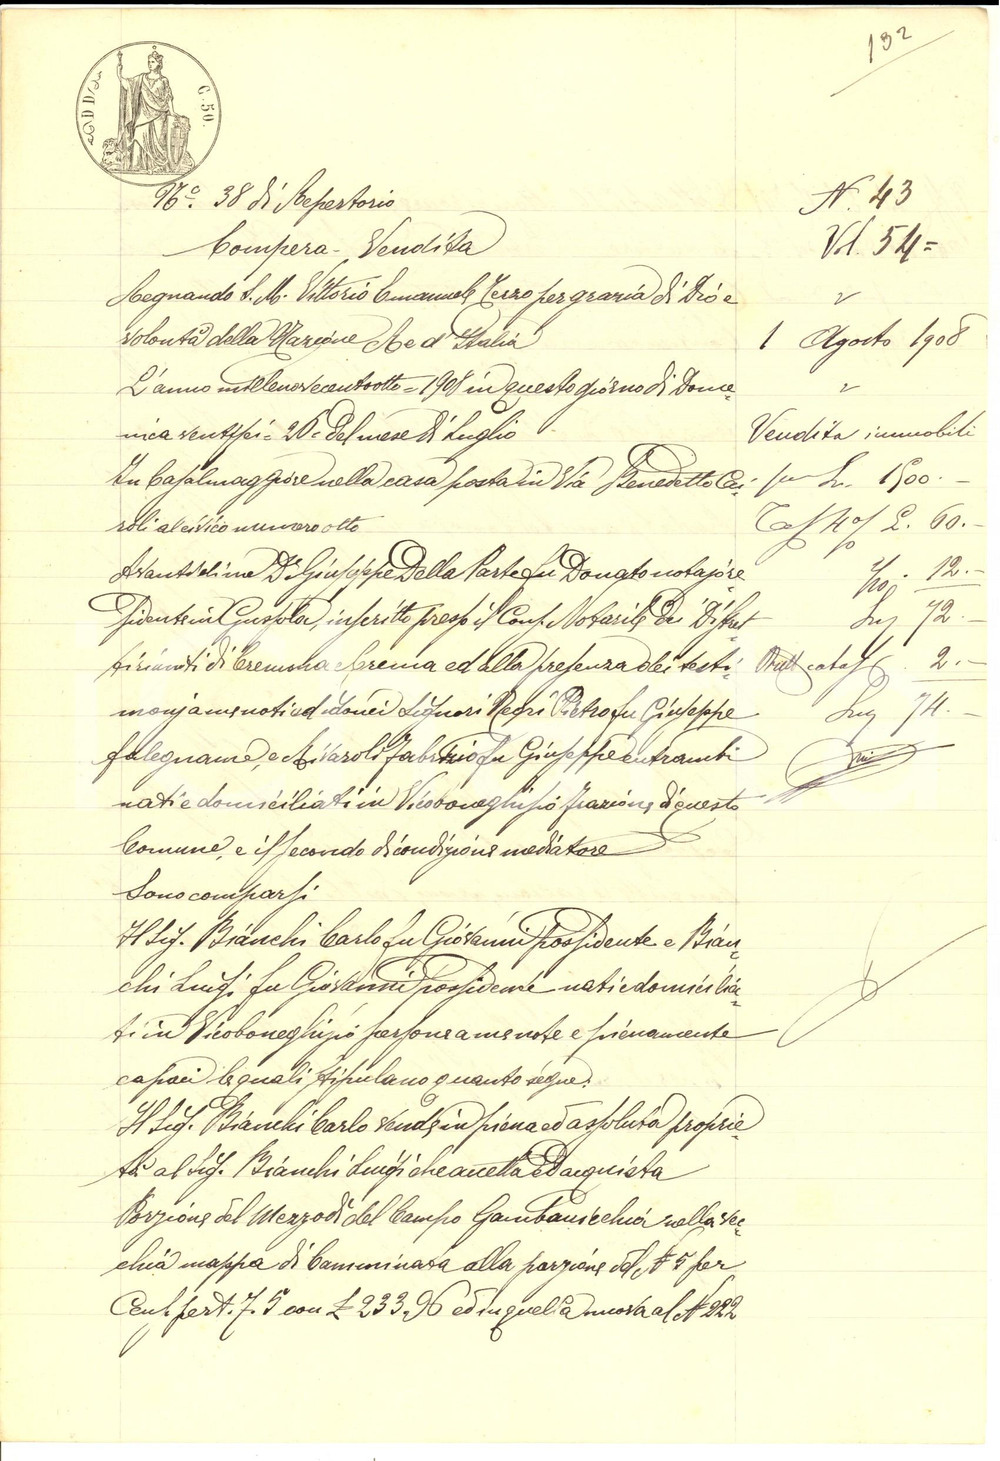 132
C. 50.
N.º 38 di Repertorio
Compera-Vendita
Regnando S. M. Vittorio Emanuele Terzo per grazia di Dio e
volontà della Nazione Re d'Italia
L'anno millenovecentootto = 1908 in questo giorno di Dome=
nica ventisei = 26 = del mese di Luglio
In Casalmaggiore nella casa posta in Via Benedetto Cai=
roli al civico numero otto
Avanti di me Dr Giuseppe Della Parte fu Donato notajo re=
sidente in Gussola, inscritto presso il Cons. Notarile dei Distret=
ti riuniti di Cremona e Crema ed alla presenza dei testi=
monj a me noti ed idonei Signori Negri Pietro fu Giuseppe
falegname, e Mivaroli Fabrizio fu Giuseppe entrambi
nati e domiciliati in Vicoboneghisio frazione di questo
Comune, e il secondo di condizione mediatore
Sono comparsi
Il Sig. Bianchi Carlo fu Giovanni Possidente e Bian=
chi Luigi fu Giovanni Possidente nati e domicilia=
ti in Vicoboneghisio persone a me note e pienamente
capaci le quali stipulano quanto segue.
Il Sig. Bianchi Carlo vende in piena ed assoluta proprie=
tà al Sig. Bianchi Luigi che accetta ed acquista
Porzione del Mezzodì del Campo Gambanicchia nella vec=
chia mappa di Camminata alla porzione del N 5 per
Cens. pert. 7. 5 con £ 233,96 ed in quella nuova al N 222
N. 43
Vol. 54 =
1 Agosto 1908
Vendita immobili
per L. 1500. -
Tas 4 % L. 60. -
12. -
72. -
catas 2. -
74. -